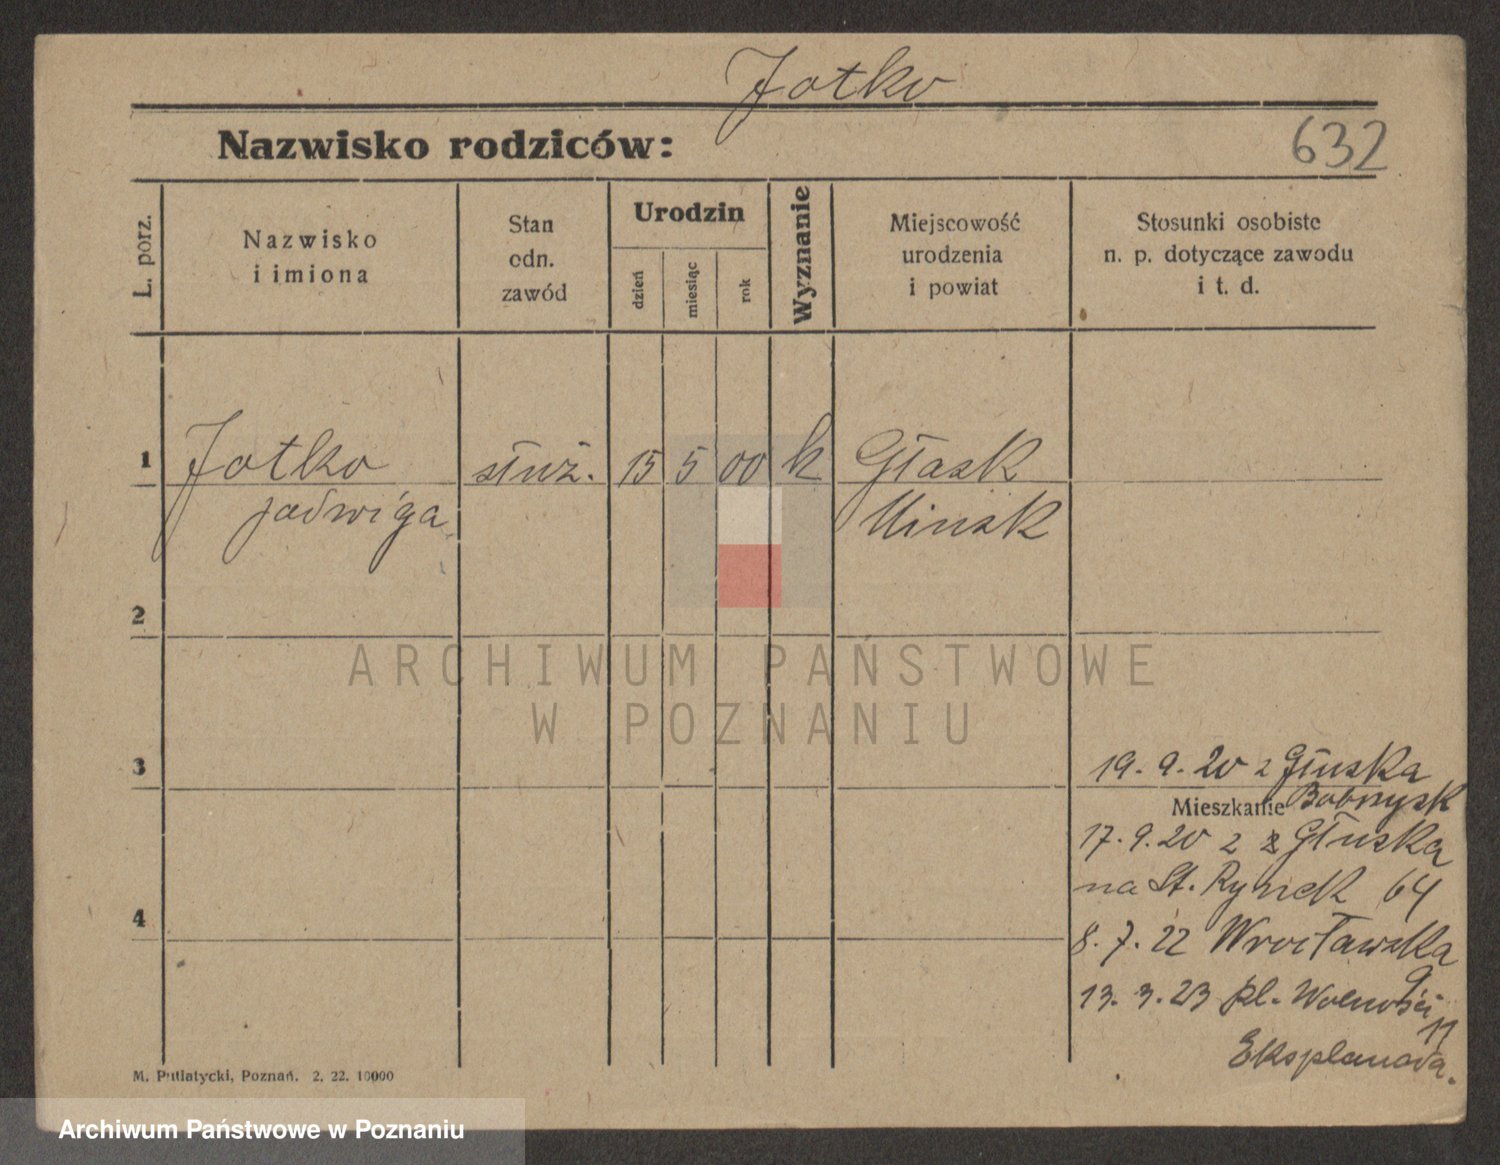 Jotko
Nazwisko rodziców:
632
L. porz.
Nazwisko
i imiona
Stan
odn.
zawód
Urodzin
dzień
miesiąc
rok
Wyznanie
Miejscowość
urodzenia
i powiat
Stosunki osobiste
n. p. dotyczące zawodu
i t. d.
1 Jotko służ. 15 5 00 k Głask
Jadwiga Minsk
2
ARCHIWUM PAŃSTWOWE
W POZNANIU
3
19. 9. 20 z Głuska
Mieszkanie Bobruysk
17. 9. 20 z z Głuska
na St. Rynek 64
4
8. 7. 22 Wrocławska
9
13. 3. 23 pl. Wolności
11
Eksplanada.
M. Putiatycki, Poznań. 2. 22. 10000
Archiwum Państwowe w Poznaniu